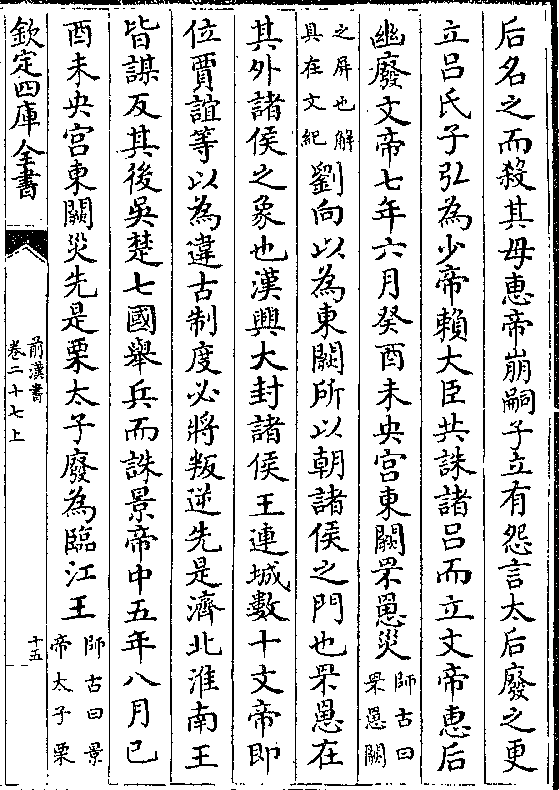 后名之而殺其母惠帝崩嗣子立有怨言太后廢之更
立呂氏子弘為少帝賴大臣共誅諸呂而立文帝惠后
幽廢文帝七年六月癸酉未央宮東闕罘罳災師古曰罘罳闕
之屏也解具在文紀劉向以為東闕所以朝諸侯之門也罘罳在
其外諸侯之象也漢興大封諸侯王連城數十文帝即
位賈誼等以為違古制度必將叛逆先是濟北淮南王
皆謀反其後吳楚七國舉兵而誅景帝中五年八月己
酉未央宮東闕災先是栗太子廢為臨江王師古曰景帝太子栗
欽定四庫全書
前漢書
卷二十七上
十五